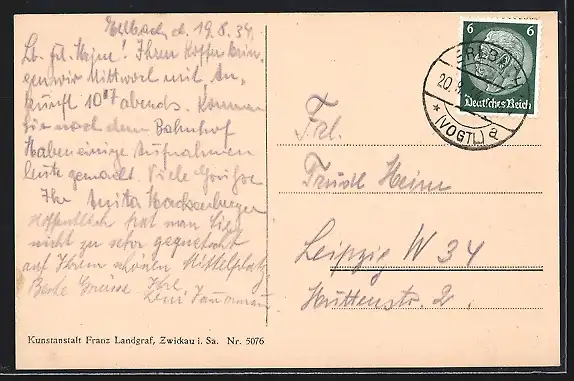 Erlbach d. 19.8.34.
Lb. Frl. Heim! Ihren Koffer brin-
gen wir Mittwoch mit, An-
kunft 10 17 abends. Kommen
Sie nach dem Bahnhof
Haben einige Aufnahmen
heute gemacht. Viele Grüsse
Ihr Anita
Hoffentlich hat man Sie
nicht zu sehr gequetscht
auf Ihrem schönen Mittelplatz
Beste Grüsse Ihr
Frl.
Trudl Heim
Leipzig W 34
Huttenstr. 2.
6 6
Deutsches Reich
ERLBACH
20.8
* (VOGTL) a
Kunstanstalt Franz Landgraf, Zwickau i. Sa. Nr. 5076